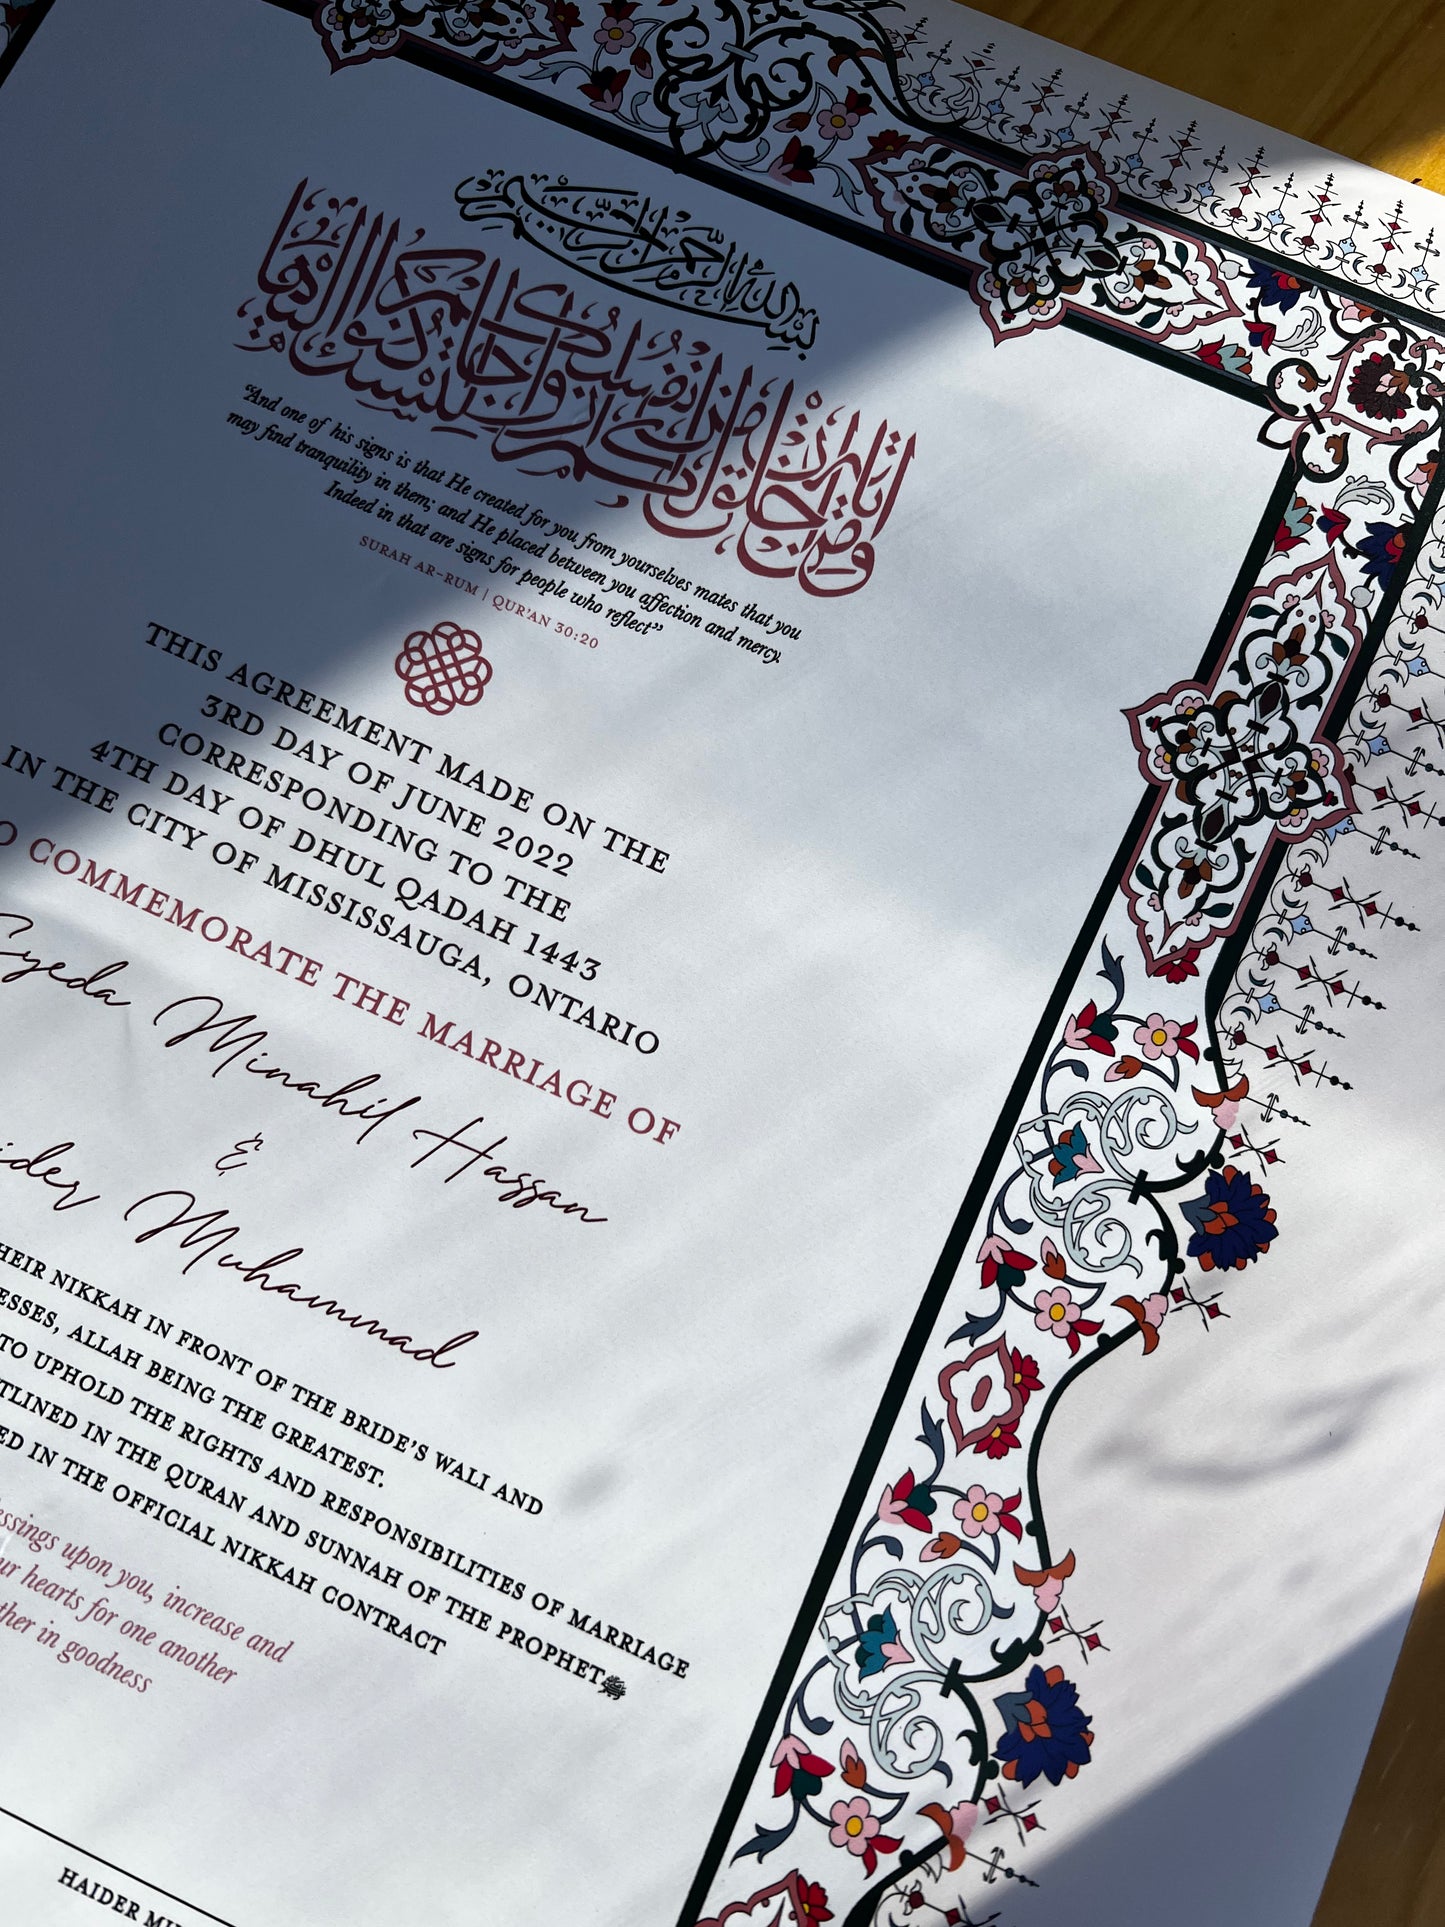 بِسْمِ اللَّهِ الرَّحْمَٰنِ الرَّحِيمِ
وَمِنْ آيَاتِهِ أَنْ خَلَقَ لَكُم مِّنْ أَنفُسِكُمْ أَزْوَاجًا لِّتَسْكُنُوا إِلَيْهَا
“And one of his signs is that He created for you from yourselves mates that you
may find tranquility in them; and He placed between you affection and mercy.
Indeed in that are signs for people who reflect”
SURAH AR-RUM | QUR'AN 30:20
THIS AGREEMENT MADE ON THE
3RD DAY OF JUNE 2022
CORRESPONDING TO THE
4TH DAY OF DHUL QADAH 1443
IN THE CITY OF MISSISSAUGA, ONTARIO
O COMMEMORATE THE MARRIAGE OF
Syeda Minahil Hassan
&
ider Muhammad
HEIR NIKKAH IN FRONT OF THE BRIDE'S WALI AND
ESSES, ALLAH BEING THE GREATEST.
TO UPHOLD THE RIGHTS AND RESPONSIBILITIES OF MARRIAGE
TLINED IN THE QURAN AND SUNNAH OF THE PROPHETﷺ
ED IN THE OFFICIAL NIKKAH CONTRACT
essings upon you, increase and
ur hearts for one another
ther in goodness
HAIDER MU